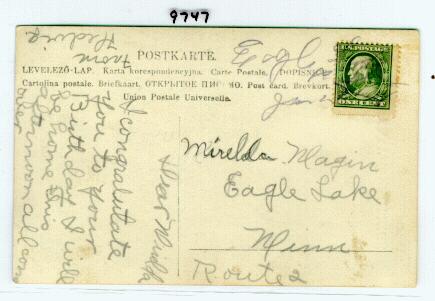 9747
POSTKARTE.
LEVELEZŐ-LAP. Karta korespondencyjna. Carte Postale. DOPISNICE.
Cartolina postale. Briefkaart. ОТКРЫТОЕ ПИСЬМО. Post card. Brevkort.
Union Postale Universelle.
Eagle
Jan
U.S. POSTAGE
ONE CENT
Mirelda Magin
Eagle Lake
Minn
Route 2
Dear
I congratulate
you to your
Birthday I will
be home this
afternoon all come
over
from
Hedwig